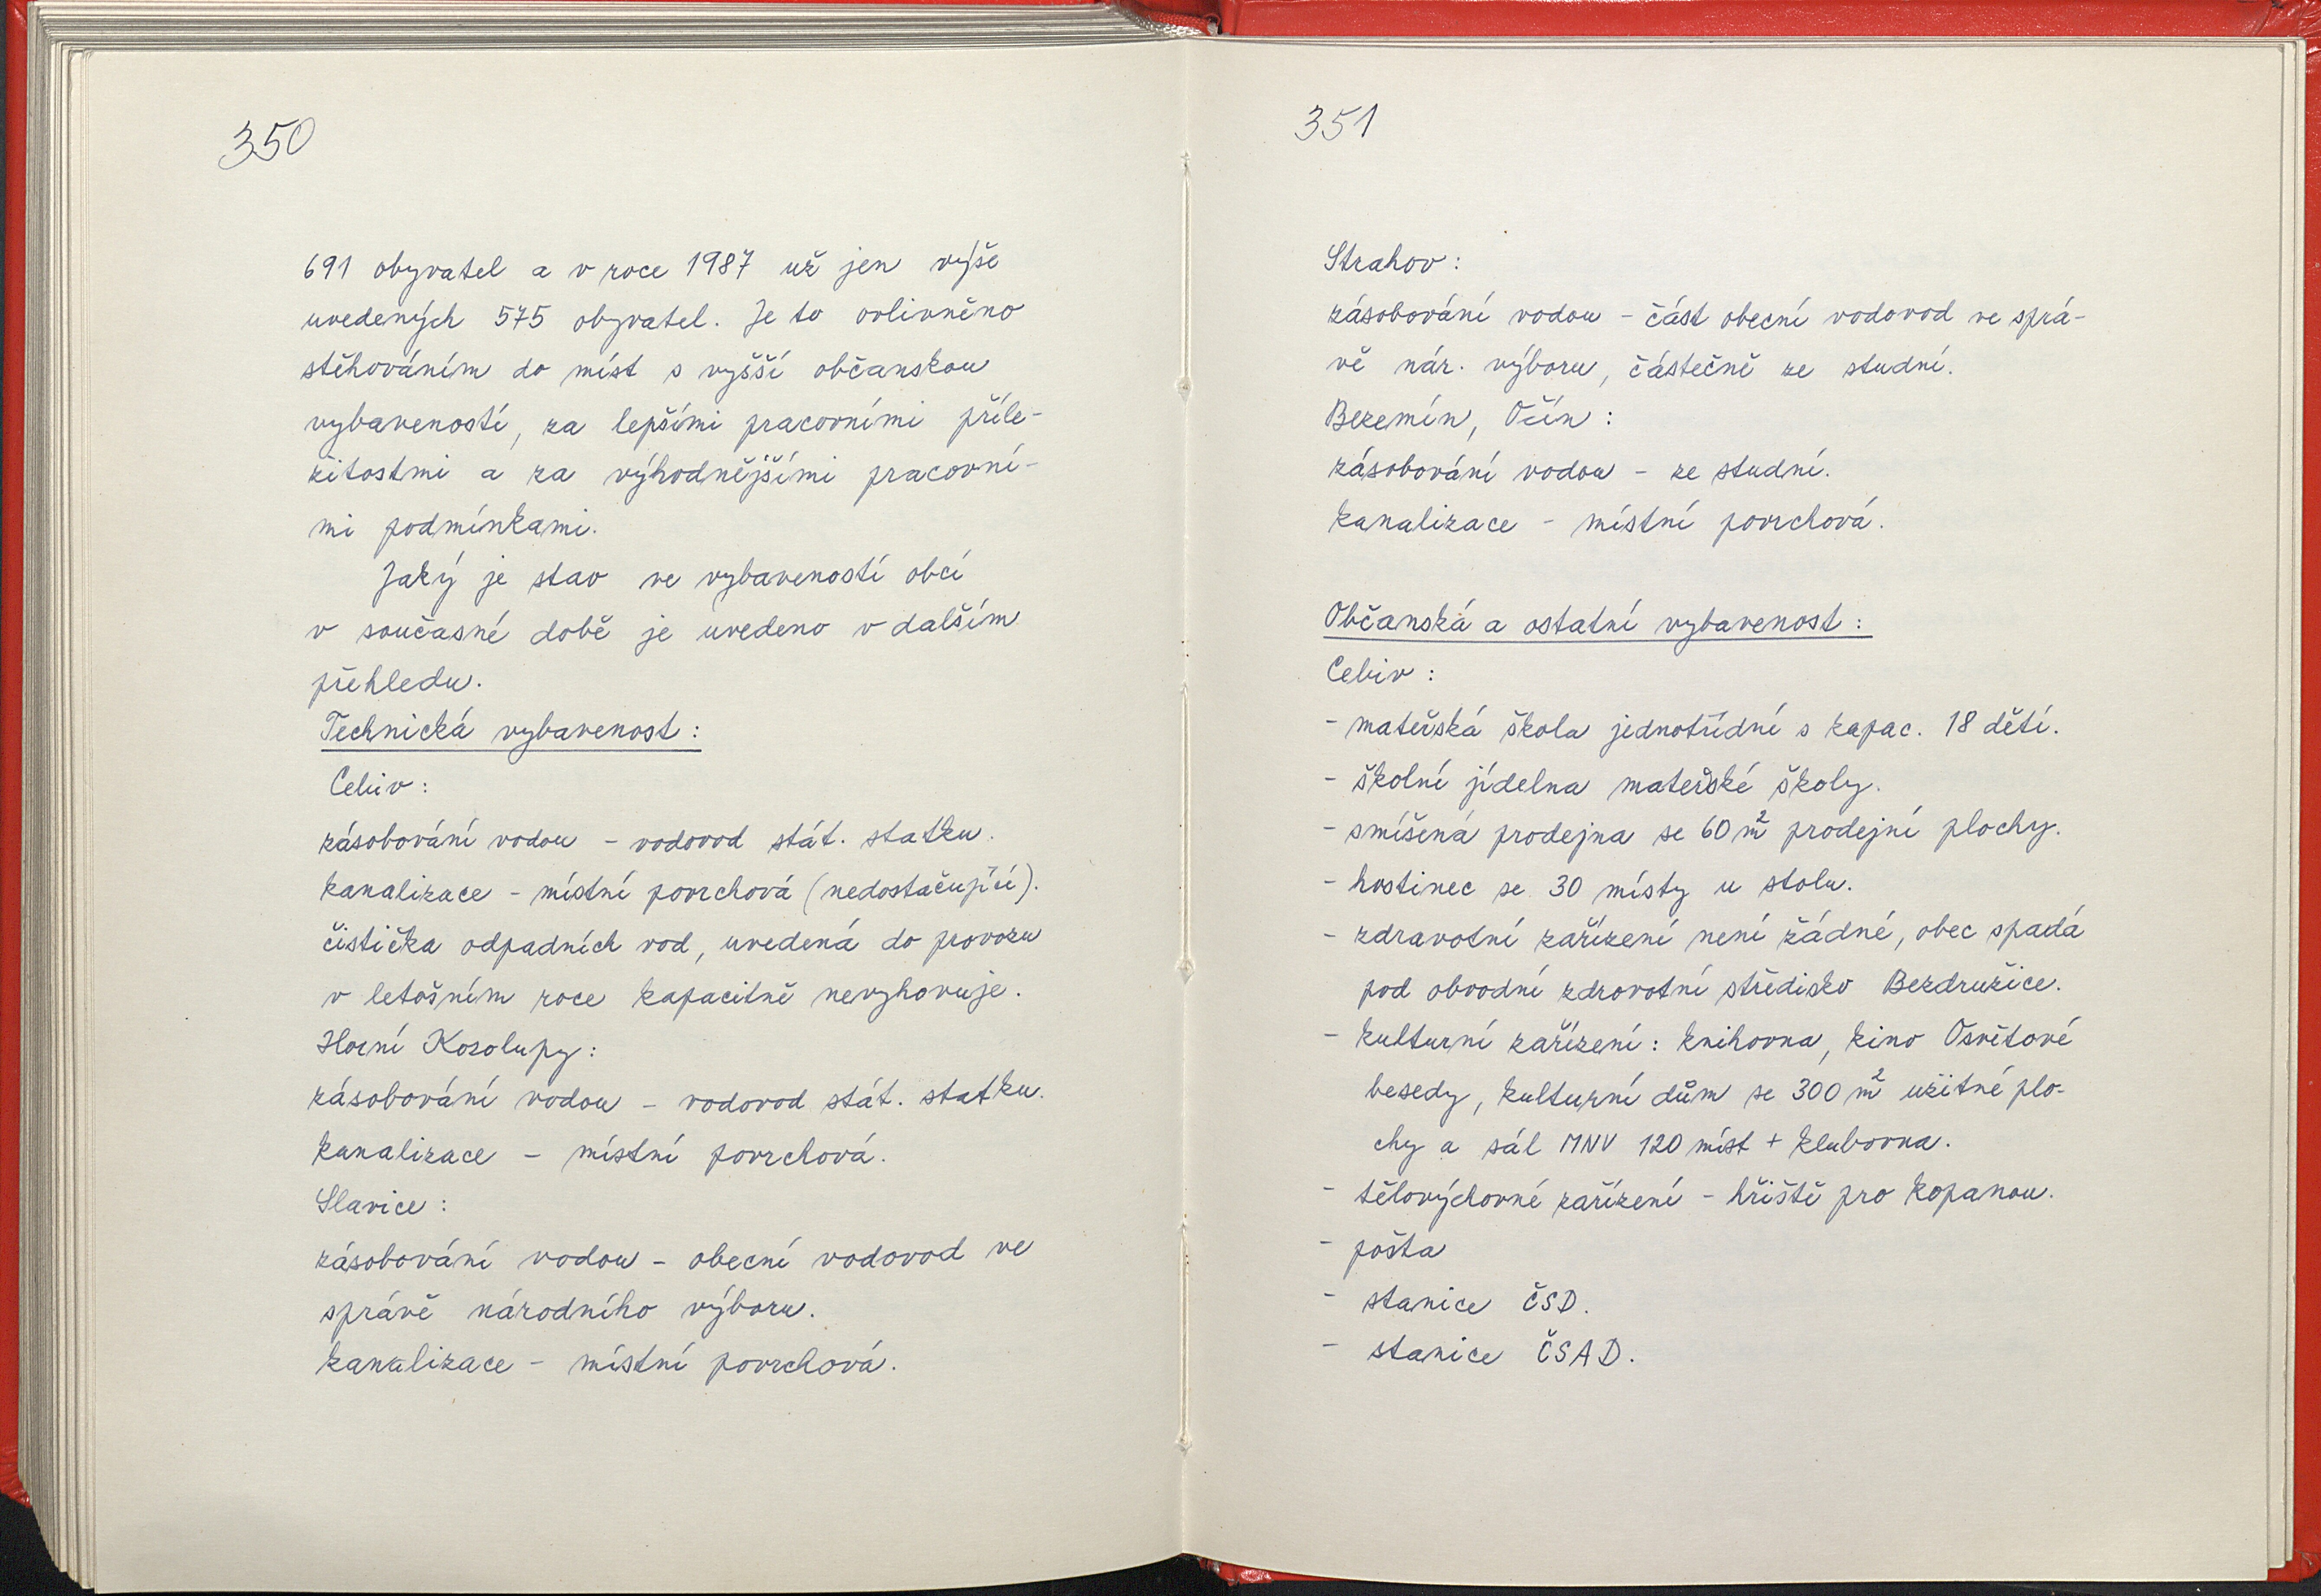 350
691 obyvatel a v roce 1987 už jen výše
uvedených 575 obyvatel. Je to ovlivněno
stěhováním do míst s vyšší občanskou
vybaveností, za lepšími pracovními příle-
žitostmi a za výhodnějšími pracovní-
mi podmínkami.
Jaký je stav ve vybavenosti obcí
v současné době je uvedeno v dalším
přehledu.
Technická vybavenost:
Cebiv:
zásobování vodou - vodovod stát. statku.
kanalizace - místní povrchová (nedostačující).
čistička odpadních vod, uvedená do provozu
v letošním roce kapacitně nevyhovuje.
Horní Kozolupy:
zásobování vodou - vodovod stát. statku.
kanalizace - místní povrchová.
Slavice:
zásobování vodou - obecní vodovod ve
správě národního výboru.
kanalizace - místní povrchová.
351
Strahov:
zásobování vodou - část obecní vodovod ve sprá-
vě nár. výboru, částečně ze studní.
Bezemín, Očín:
zásobování vodou - ze studní.
kanalizace - místní povrchová.
Občanská a ostatní vybavenost:
Cebiv:
- mateřská škola jednotřídní s kapac. 18 dětí.
- školní jídelna mateřské školy.
- smíšená prodejna se 60 m² prodejní plochy.
- hostinec se 30 místy u stolu.
- zdravotní zařízení není žádné, obec spadá
pod obvodní zdravotní středisko Bezdružice.
- kulturní zařízení: knihovna, kino Osvětové
besedy, kulturní dům se 300 m² užitné plo-
chy a sál MNV 120 míst + klubovna.
- tělovýchovné zařízení - hřiště pro kopanou.
- pošta
- stanice ČSD.
- stanice ČSAD.